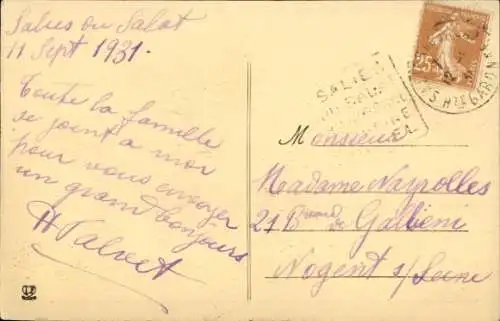 Salies du Salat
11 Sept 1931.
Toute la famille
se joint à moi
pour vous envoyer
un grand bonjours
25
SALIES
DU SALAT
Hte GARONNE
Monsieur
Madame Nayrolles
21 Bvard de Galliéni
Nogent s/ Seine